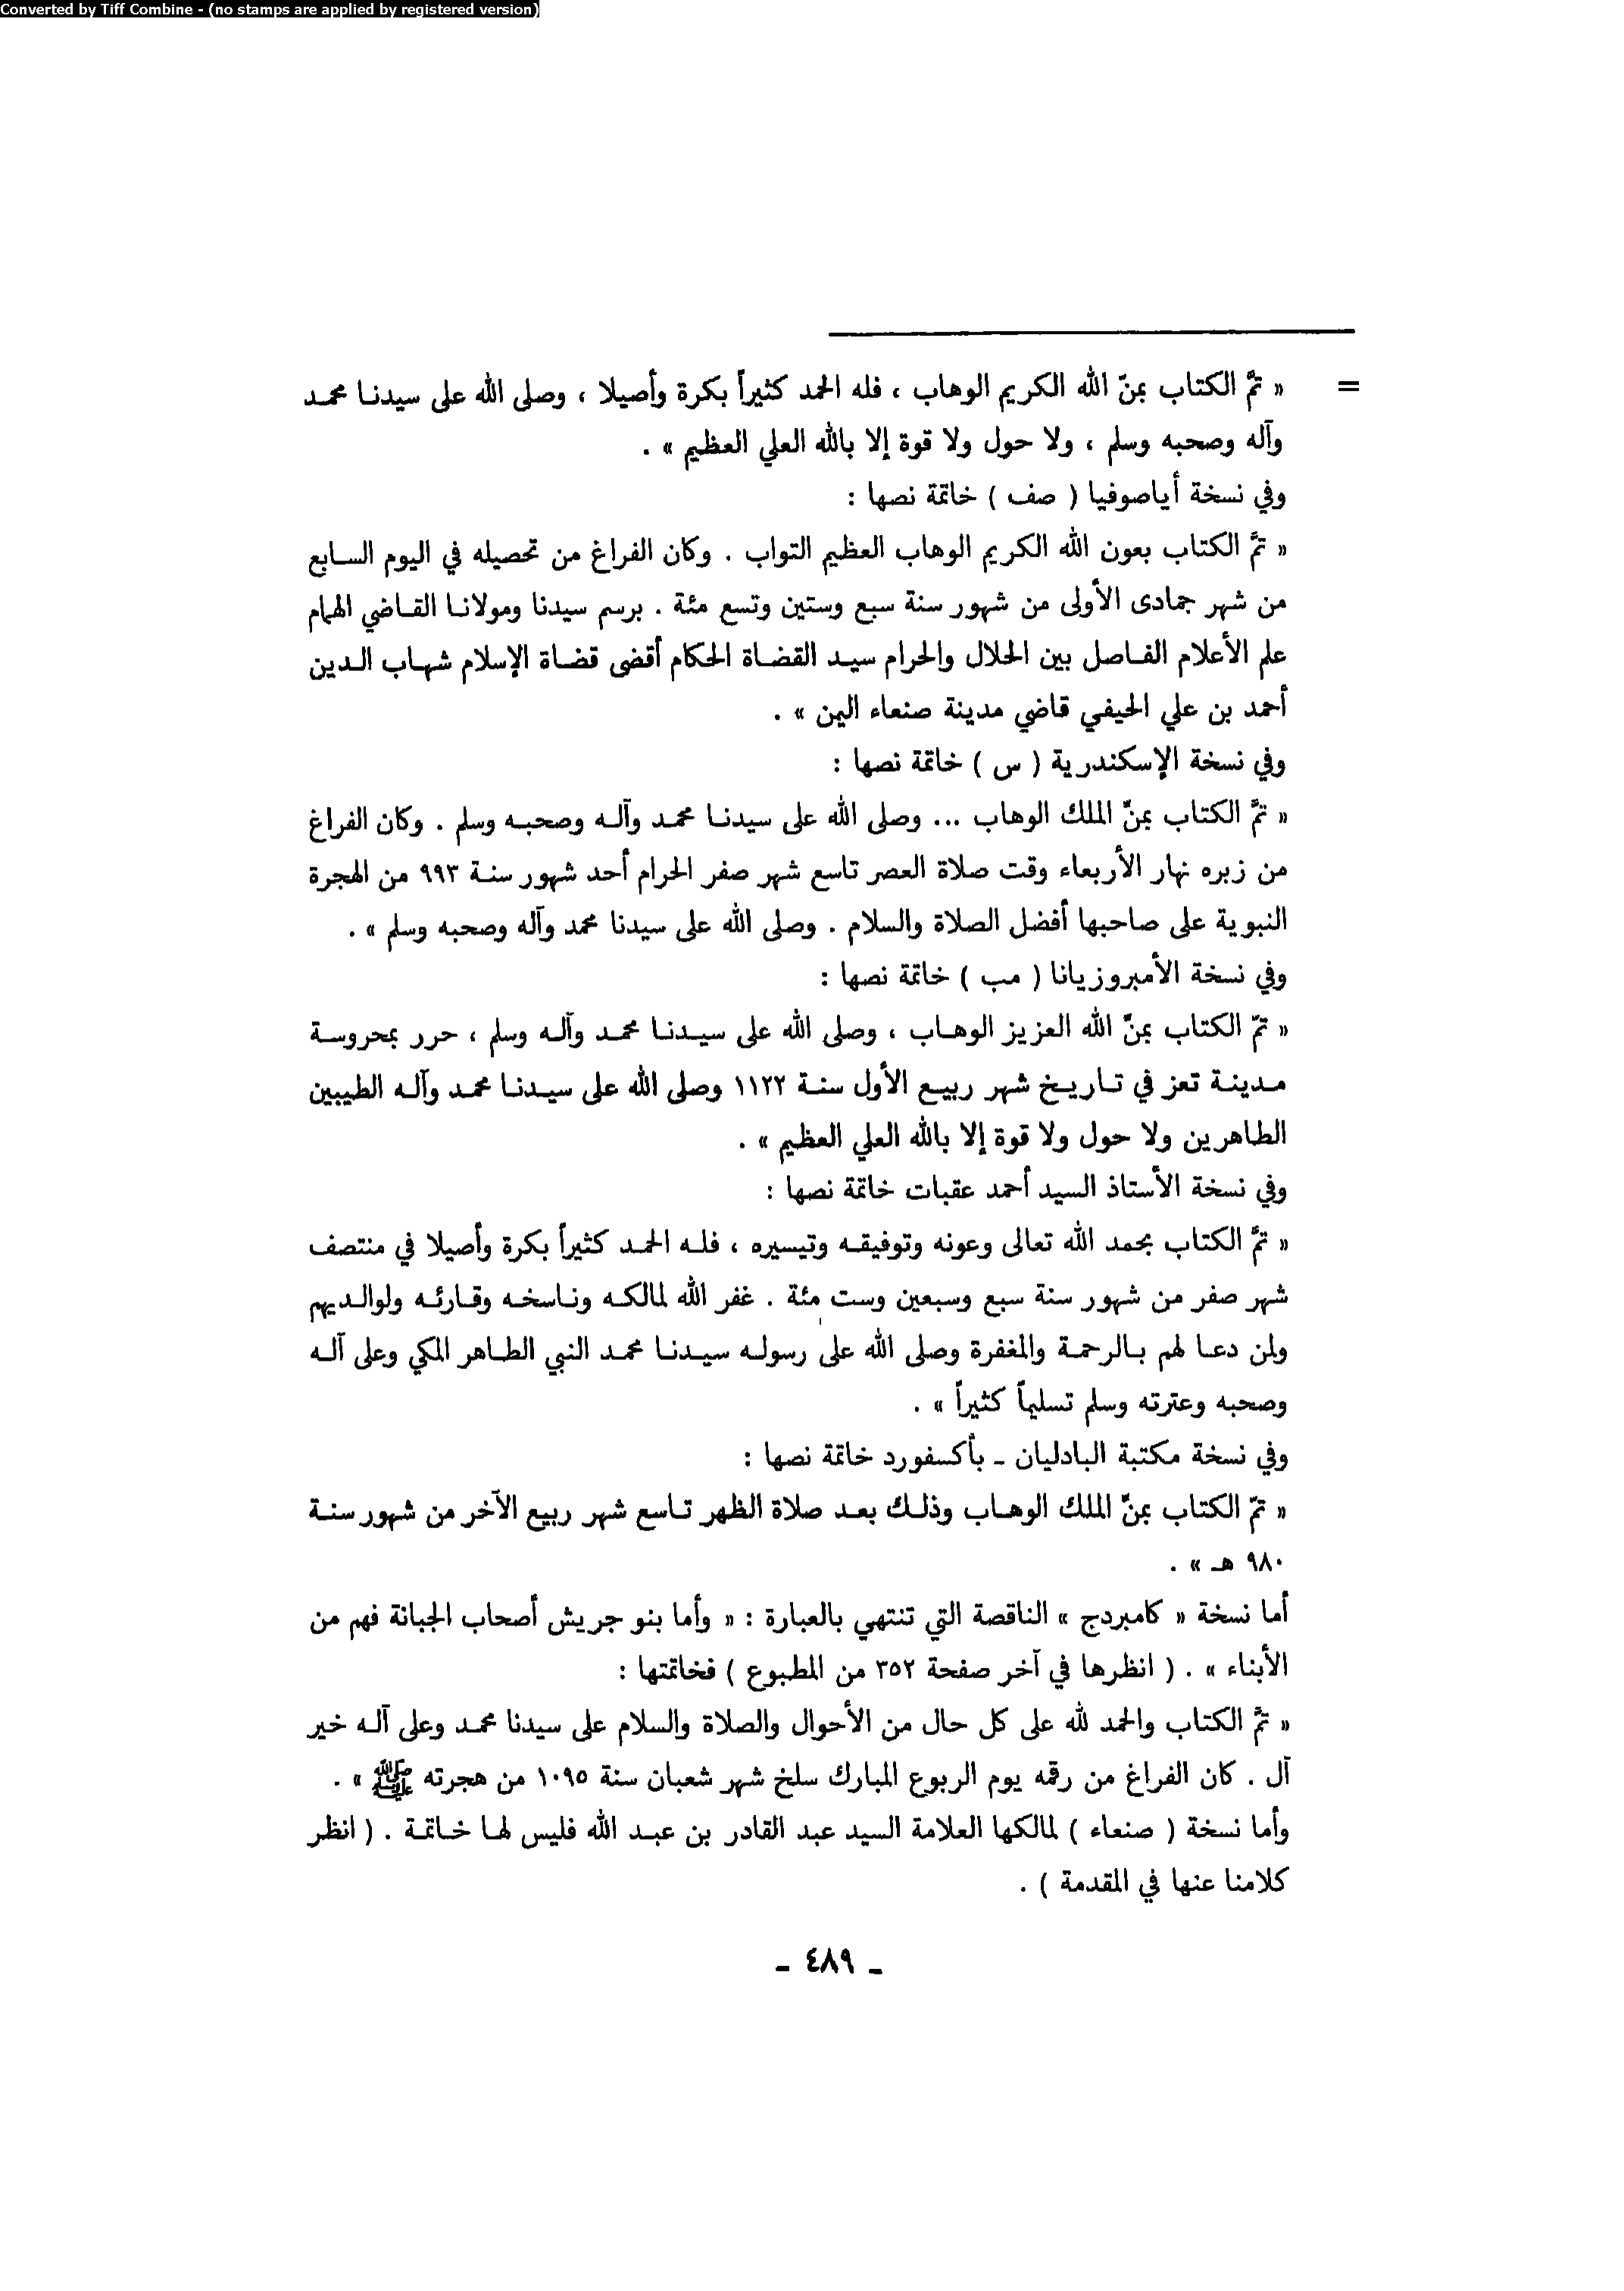 Converted by Tiff Combine - (no stamps are applied by registered version)
= « تمَّ الكتاب بمنّ الله الكريم الوهاب ، فله الحمد كثيراً بكرة وأصيلا ، وصلى الله على سيدنا محمد
وآله وصحبه وسلم ، ولا حول ولا قوة إلا بالله العلي العظيم » .
وفي نسخة أياصوفيا ( صف ) خاتمة نصها :
« تمَّ الكتاب بعون الله الكريم الوهاب العظيم التواب . وكان الفراغ من تحصيله في اليوم السابع
من شهر جمادى الأولى من شهور سنة سبع وستين وتسع مئة . برسم سيدنا ومولانا القاضي الهمام
علم الأعلام الفاصل بين الحلال والحرام سيد القضاة الحكام أقضى قضاة الإسلام شهاب الدين
أحمد بن علي الحيفي قاضي مدينة صنعاء اليمن » .
وفي نسخة الإسكندرية ( س ) خاتمة نصها :
« تمَّ الكتاب بمنّ الملك الوهاب ... وصلى الله على سيدنا محمد وآله وصحبه وسلم . وكان الفراغ
من زبره نهار الأربعاء وقت صلاة العصر تاسع شهر صفر الحرام أحد شهور سنة ٩٩٣ من الهجرة
النبوية على صاحبها أفضل الصلاة والسلام . وصلى الله على سيدنا محمد وآله وصحبه وسلم » .
وفي نسخة الأمبروزيانا ( مب ) خاتمة نصها :
« تمّ الكتاب بمنّ الله العزيز الوهاب ، وصلى الله على سيدنا محمد وآله وسلم ، حرر بمحروسة
مدينة تعز في تاريخ شهر ربيع الأول سنة ١١٢٢ وصلى الله على سيدنا محمد وآله الطيبين
الطاهرين ولا حول ولا قوة إلا بالله العلي العظيم » .
وفي نسخة الأستاذ السيد أحمد عقبات خاتمة نصها :
« تمَّ الكتاب بحمد الله تعالى وعونه وتوفيقه وتيسيره ، فله الحمد كثيراً بكرة وأصيلا في منتصف
شهر صفر من شهور سنة سبع وسبعين وست مئة . غفر الله لمالكه وناسخه وقارئه ولوالديهم
ولمن دعا لهم بالرحمة والمغفرة وصلى الله على رسوله سيدنا محمد النبي الطاهر المكي وعلى آله
وصحبه وعترته وسلم تسليماً كثيراً » .
وفي نسخة مكتبة البادليان ـ بأكسفورد خاتمة نصها :
« تمّ الكتاب بمنّ الملك الوهاب وذلك بعد صلاة الظهر تاسع شهر ربيع الآخر من شهور سنة
٩٨٠ هـ » .
أما نسخة « كامبردج » الناقصة التي تنتهي بالعبارة : « وأما بنو جريش أصحاب الجبانة فهم من
الأبناء » . ( انظرها في آخر صفحة ٣٥٢ من المطبوع ) فخاتمتها :
« تمَّ الكتاب والحمد لله على كل حال من الأحوال والصلاة والسلام على سيدنا محمد وعلى آله خير
آل . كان الفراغ من رقمه يوم الربوع المبارك سلخ شهر شعبان سنة ١٠٩٥ من هجرته ﷺ » .
وأما نسخة ( صنعاء ) لمالكها العلامة السيد عبد القادر بن عبد الله فليس لها خاتمة . ( انظر
كلامنا عنها في المقدمة ) .
ـ ٤٨٩ ـ